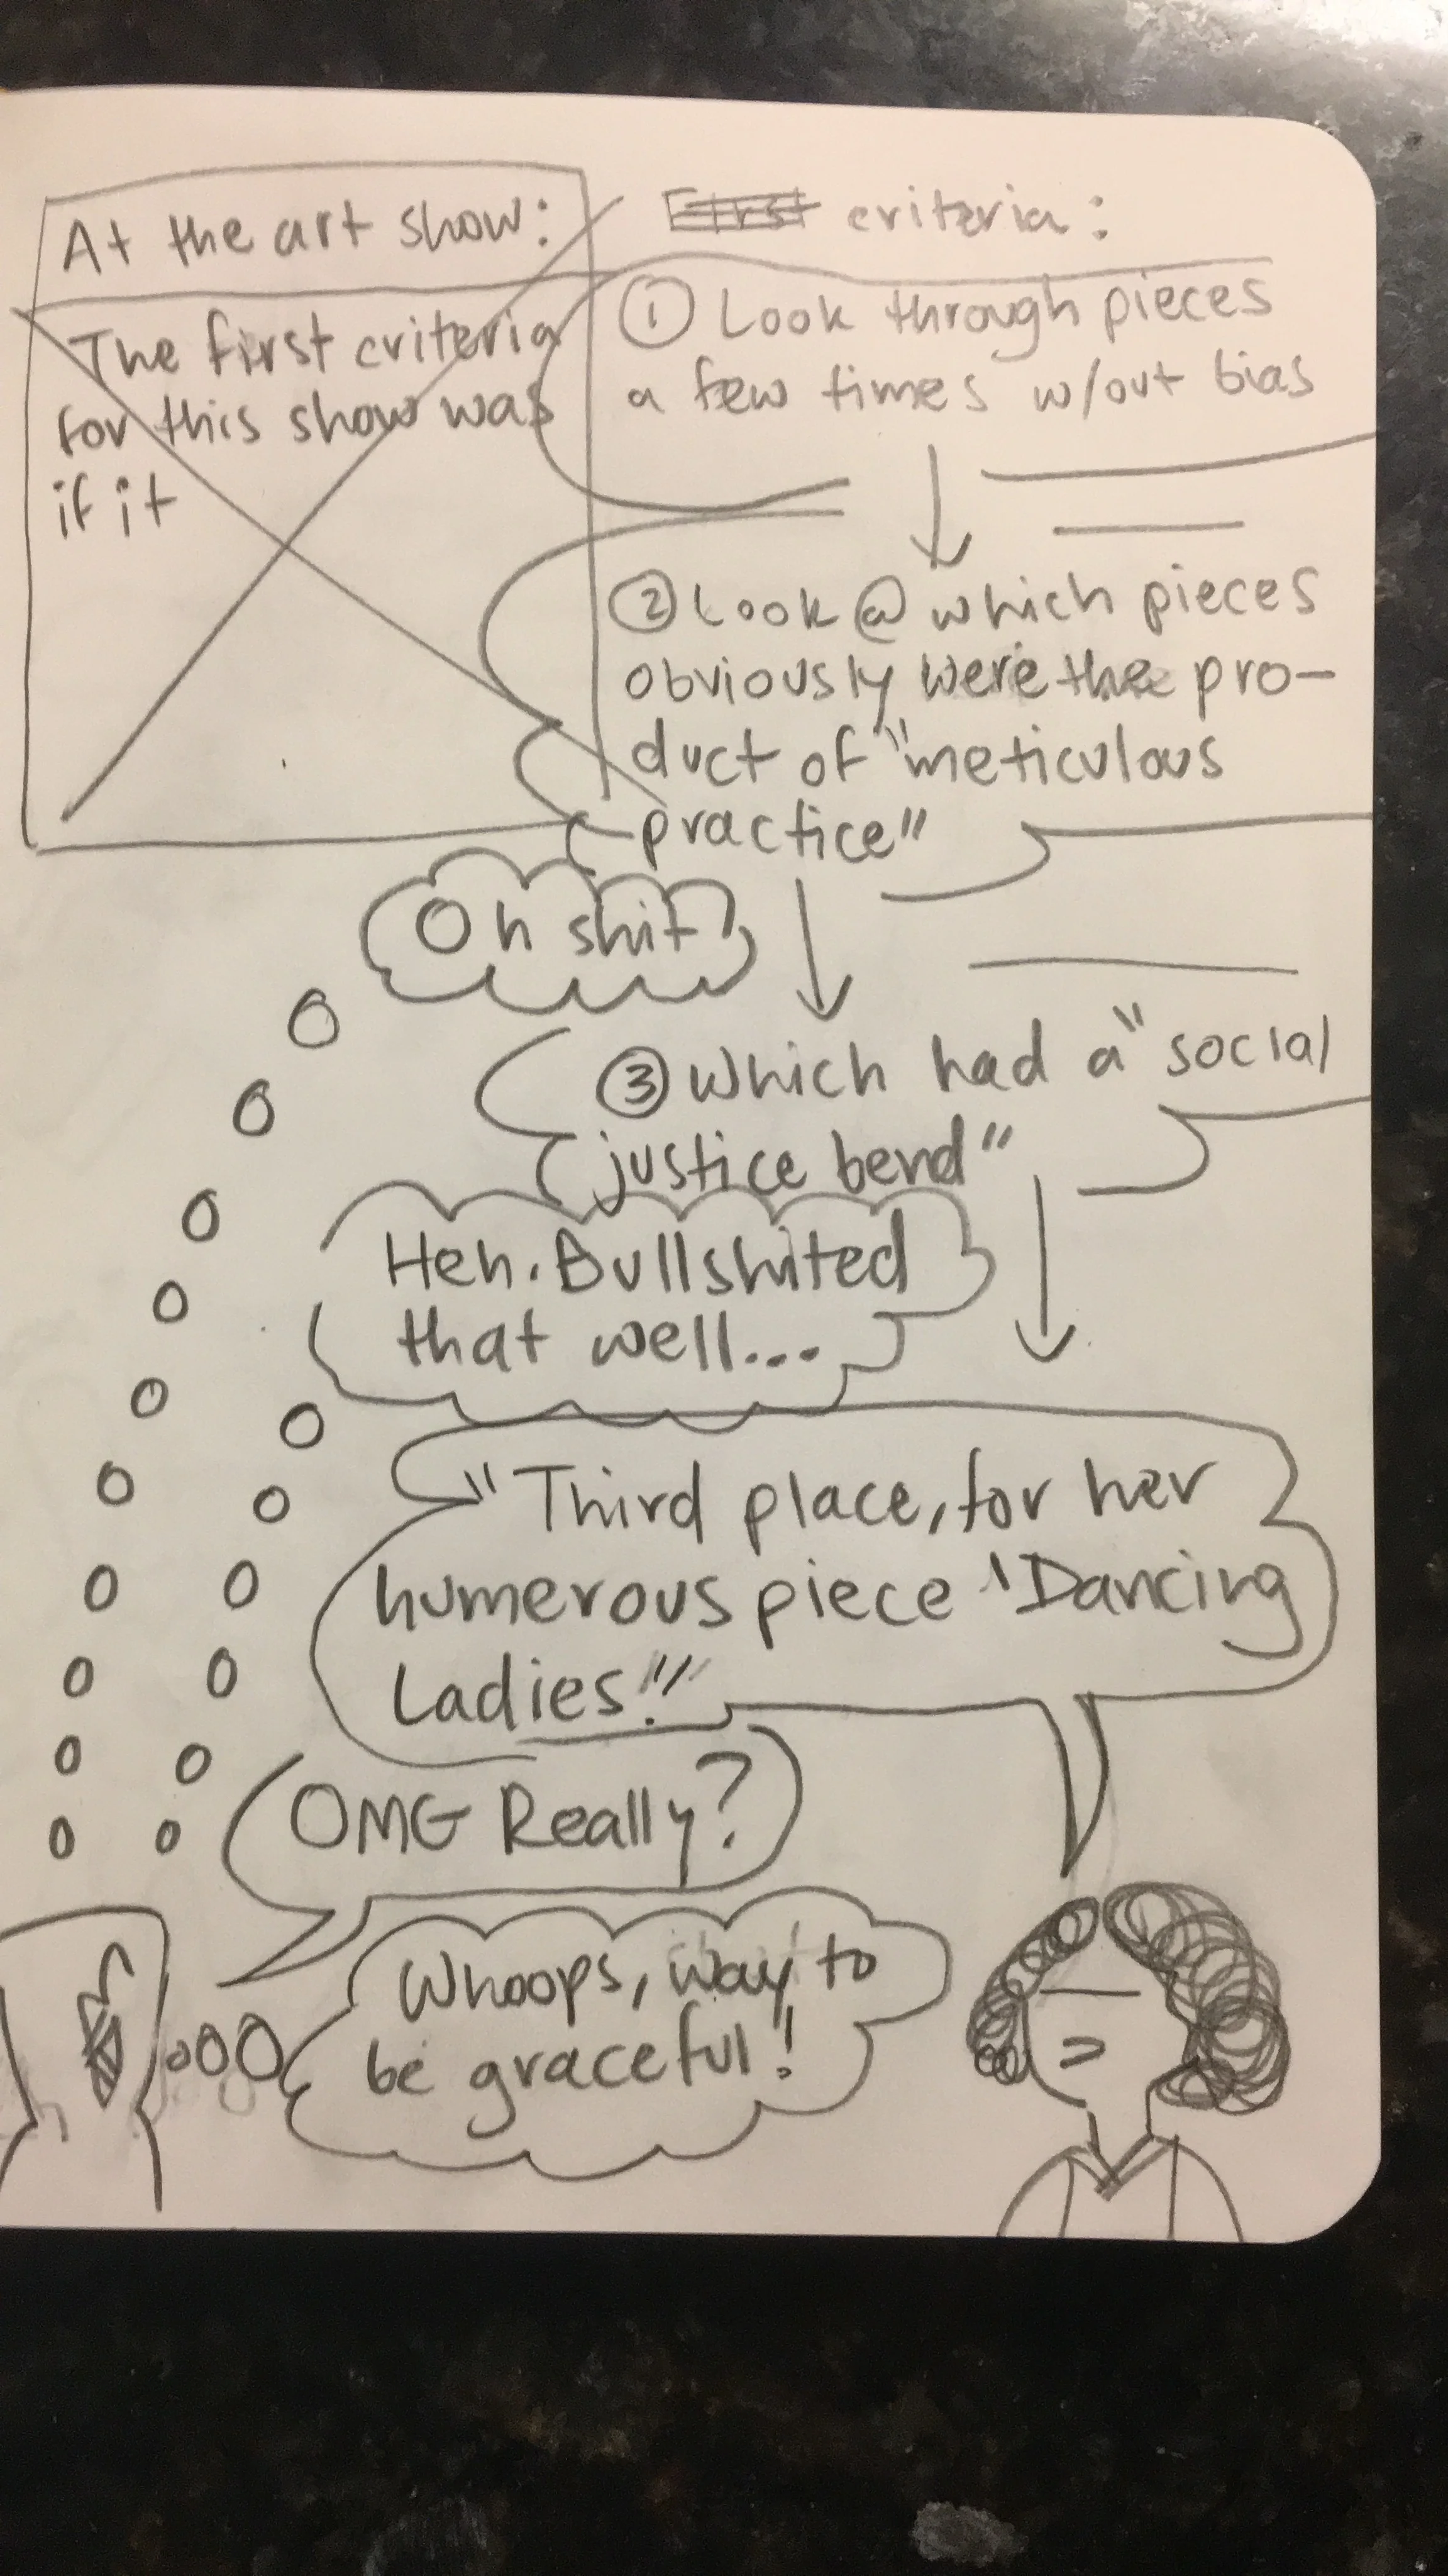 At the art show:
The first criteria
for this show was
if it
First criteria:
① Look through pieces
a few times w/out bias
② Look @ which pieces
obviously were the pro-
duct of "meticulous
practice"
Oh shit!
③ Which had a "social
justice bend"
Heh. Bullshited
that well...
"Third place, for her
humerous piece 'Dancing
Ladies!'"
OMG Really?
Whoops, way to
be graceful!